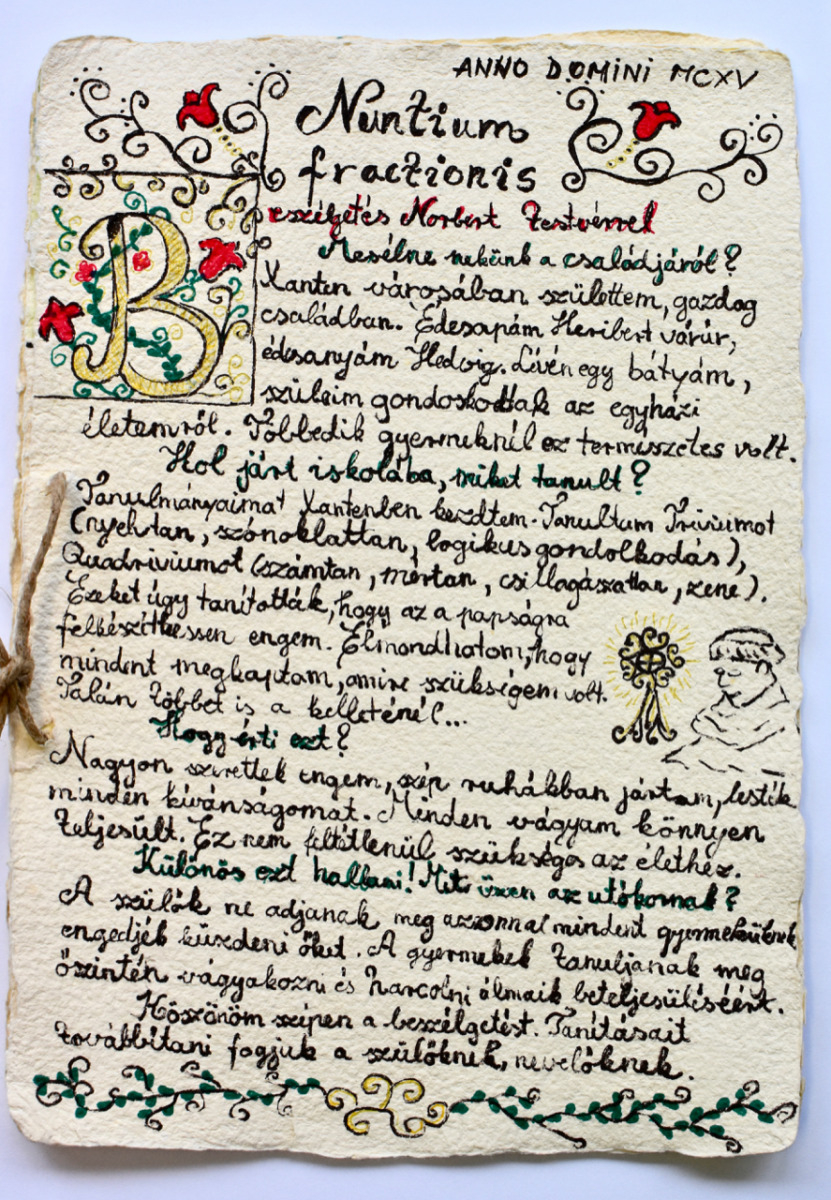 ANNO DOMINI MCXV
Nuntium
fractionis
Beszélgetés Norbert testvérrel
Mesélne nekünk a családjáról?
Xanten városában születtem, gazdag
családban. Édesapám Heribert várúr,
édesanyám Hedvig. Lévén egy bátyám,
szüleim gondoskodtak az egyházi
életemről. Többedik gyermeknél ez természetes volt.
Hol járt iskolába, miket tanult?
Tanulmányaimat Xantenben kezdtem. Tanultam Triviumot
(nyelvtan, szónoklattan, logikus gondolkodás),
Quadriviumot (számtan, mértan, csillagászattan, zene).
Ezeket úgy tanították, hogy az a papságra
felkészíthessen engem. Elmondhatom, hogy
mindent megkaptam, amire szükségem volt.
Talán többet is a kelleténél...
Hogy érti ezt?
Nagyon szerettek engem, szép ruhákban jártam, lesték
minden kívánságomat. Minden vágyam könnyen
teljesült. Ez nem feltétlenül szükséges az élethez.
Különös ezt hallani! Mit üzen az utókornak?
A szülők ne adjanak meg azonnal mindent gyermeküknek
engedjék küzdeni őket. A gyermekek tanuljanak meg
őszintén vágyakozni és harcolni álmaik beteljesüléséért.
Köszönöm szépen a beszélgetést. Tanításait
továbbítani fogjuk a szülőknek, nevelőknek.